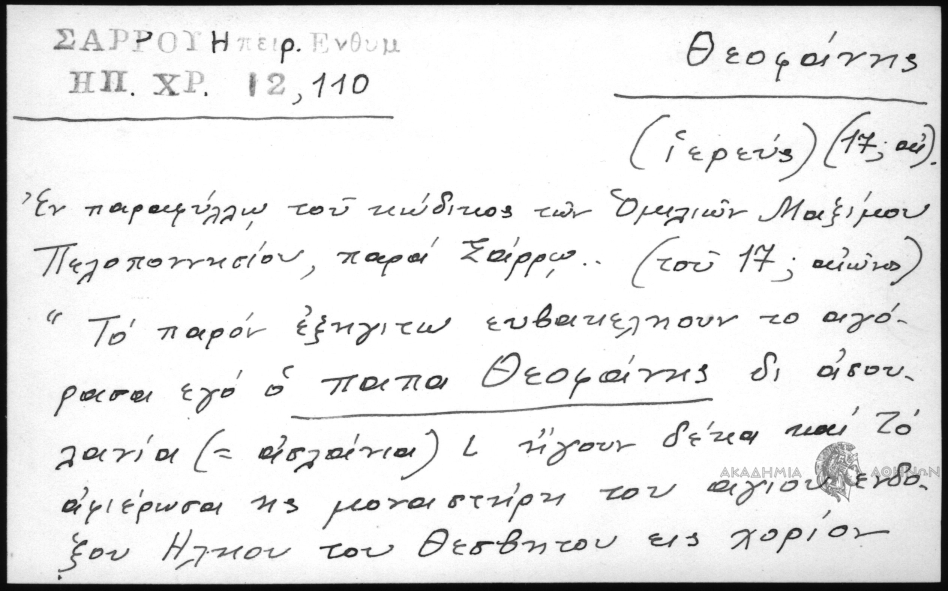 ΣΑΡΡΟΥ Ηπειρ. Ενθυμ
ΗΠ. ΧΡ. 12, 110
Θεοφάνης
(ἱερεύς) (17; αἰ).
Ἐν παραφύλλῳ τοῦ κώδικος τῶν Ὁμιλιῶν Μαξίμου
Πελοποννησίου, παρά Σάρρῳ.. (τοῦ 17; αἰῶνος)
“ Τό παρόν ἐξηγιτω ευβακεληουν το αγό-
ρασα εγό ὁ παπα Θεοφάνης δι ἀσου-
λανία (= ἀσλάνια) ι ἤγουν δέκα καί τό
ἀφιέρωσα ης μοναστήρη του αγιου ενδο-
ξου Ηληου του Θεσβητου εις χορίον
ΑΚΑΔΗΜΙΑ ΑΘΗΝΩΝ